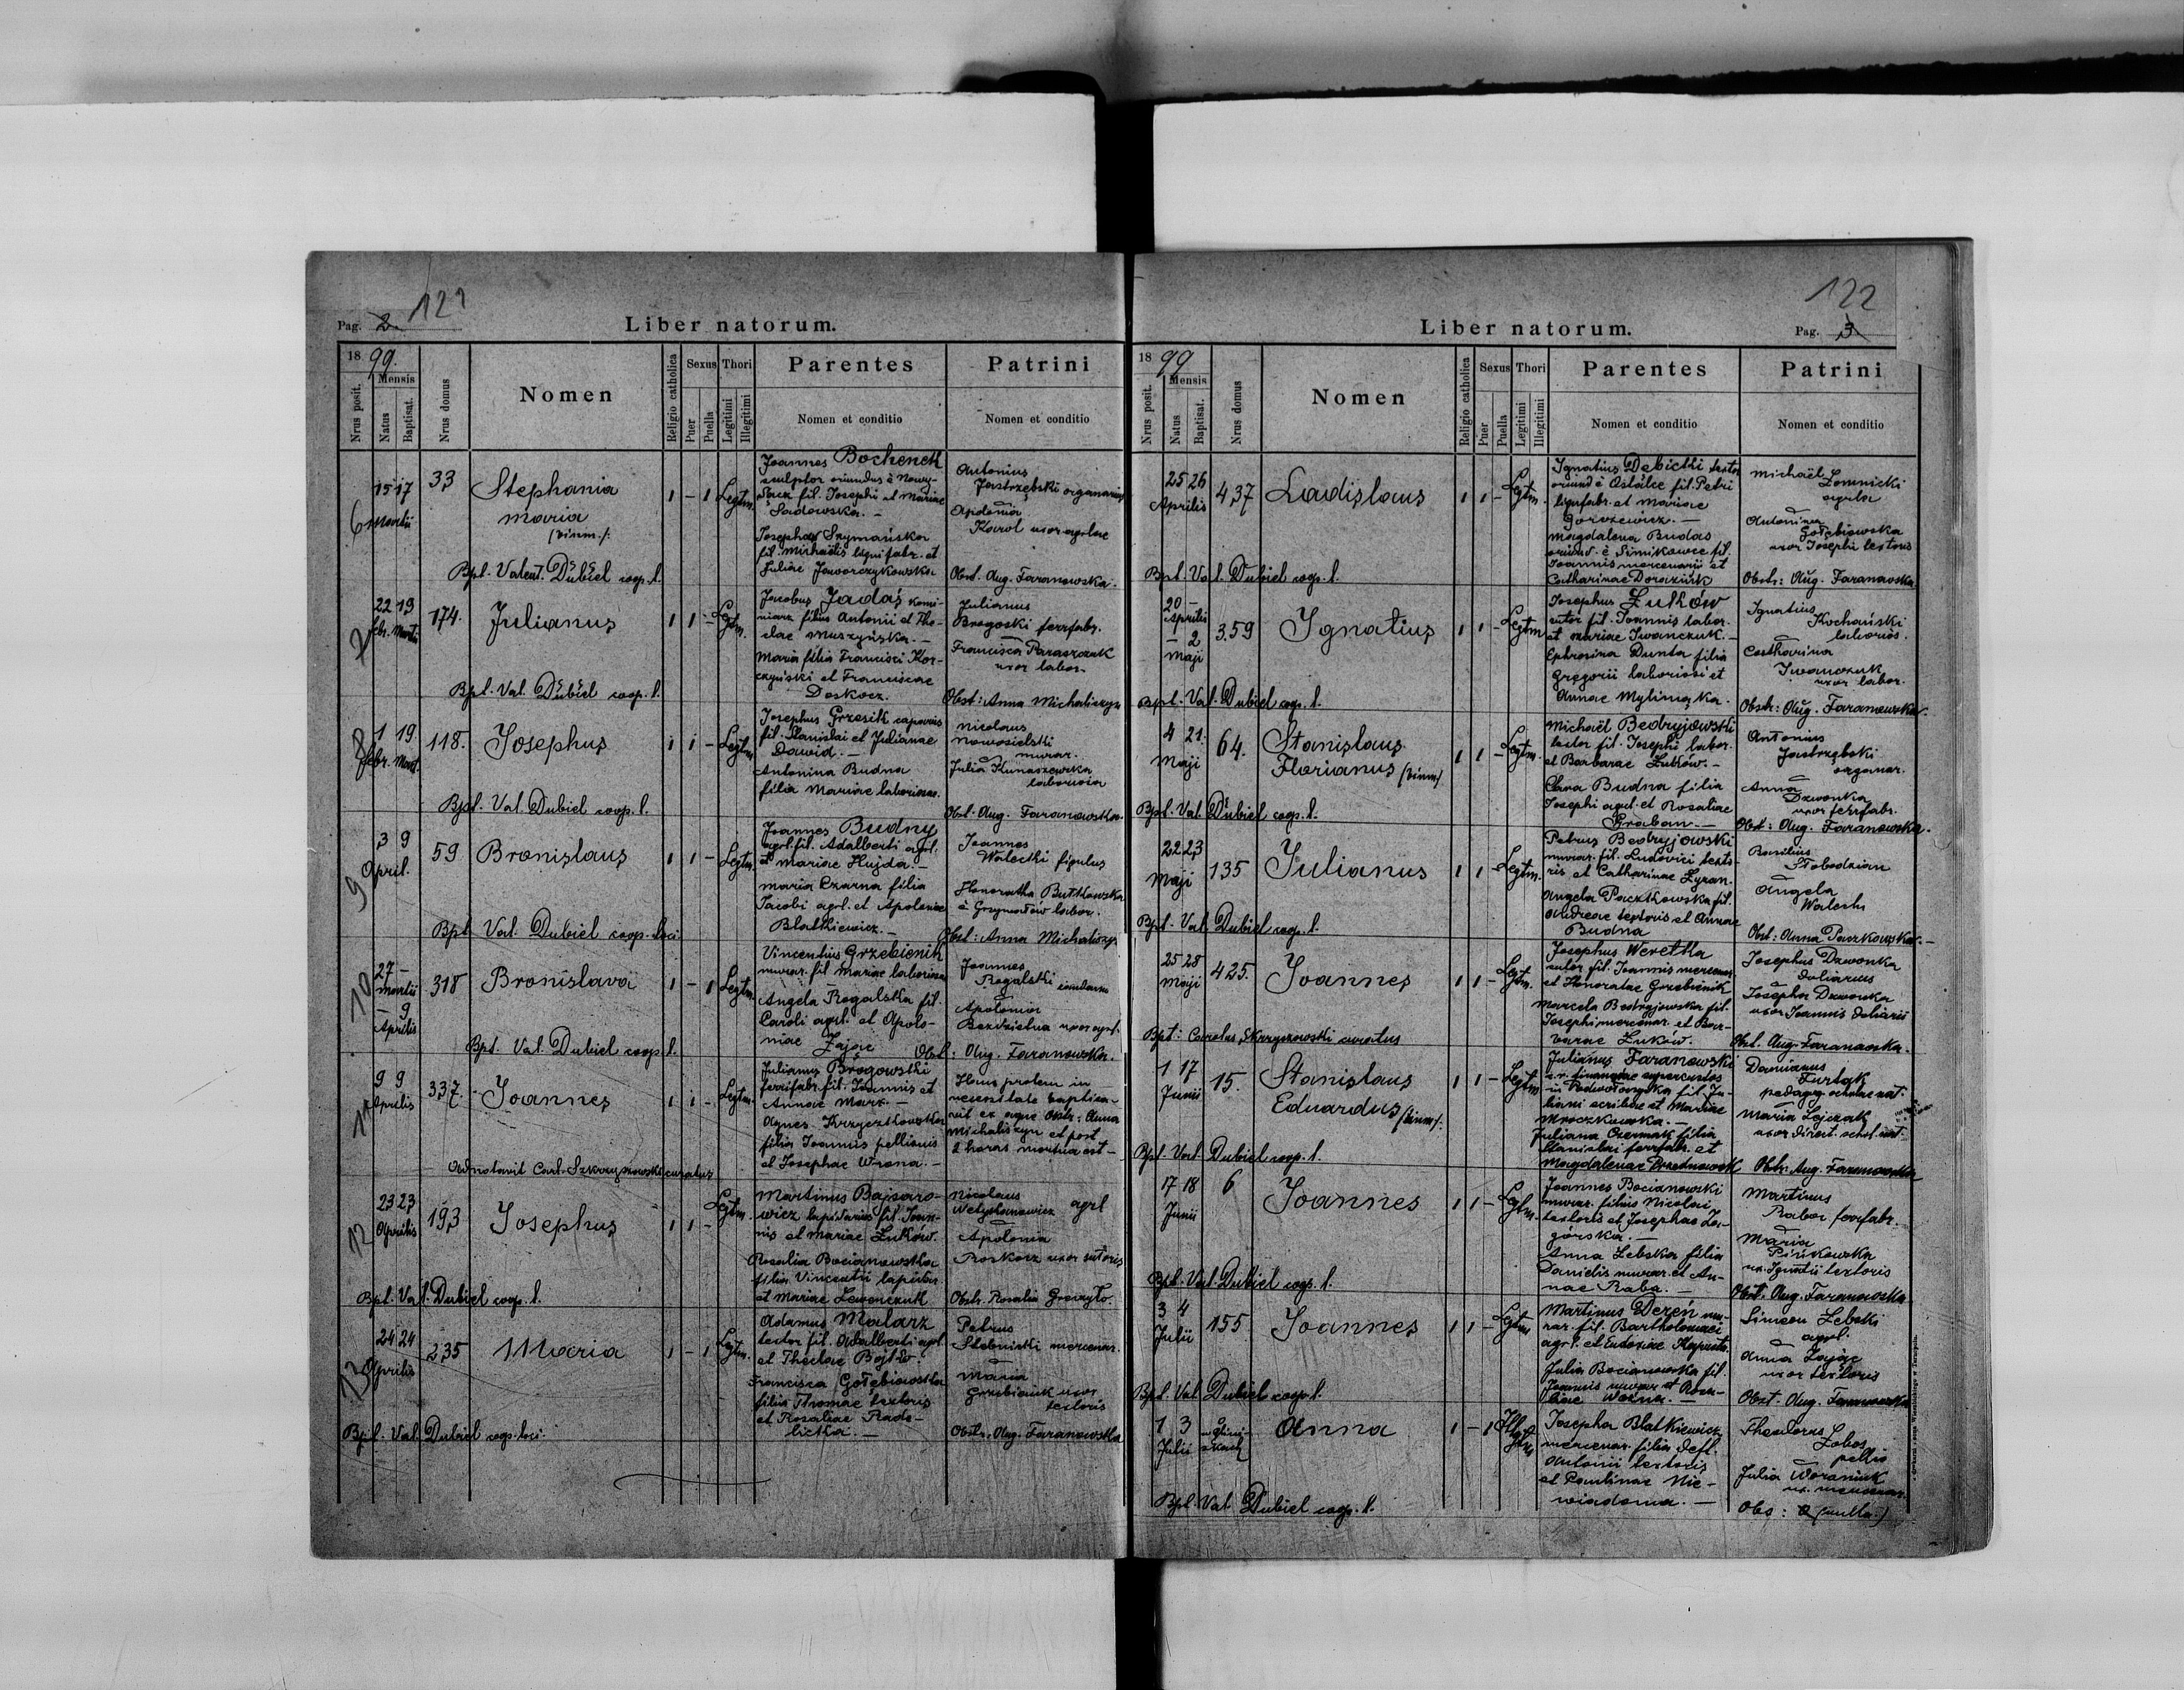 122
Pag. 2
Liber natorum.
1899.
Nrus posit.
Mensis
Natus
Baptisat.
Nrus domus
Nomen
Religio catholica
Sexus
Puer
Puella
Thori
Legitimi
Illegitimi
Parentes
Nomen et conditio
Patrini
Nomen et conditio
6
15 17
Martii
33
Stephania
Maria
/binm./.
1 - 1 Legtm.
Joannes Bochenek
sculptor oriundus è Nowy-
Sącz fil. Josephi et Mariae
Sadowska. -
Josepha Szymańska
fil. Michaëlis lignifabr. et
Juliae Jaworczykowska
Antonius
Jastrzębski organarius
Apolonia
Karol uxor agrlae
Obst. Aug. Faranowska.
Bpt. Valent. Dubiel coop. l.
22 19
febr. Martii
174.
Julianus
1 1 - Legtm.
Jacobus Jadaś komi-
niarz filius Antonii et The-
clae Muszyńska. -
Maria filia Francisci Kor-
czyński et Franciscae
Doskocz.
Julianus
Brogoski ferrfabr.
Francisca Paraszczuk
uxor labor.
Obst: Anna Michaliszyn
Bpt. Val. Dubiel coop. l.
8
1 19
febr. Mart.
118.
Josephus
1 1 - Legtm.
Josephus Grzesik
fil. Stanislai et Julianae
Dawid. -
Antonina Budna
filia Mariae laboriosae.
Nicolaus
Nowosielski
murar.
Julia Kunaszewska
laboriosa
Obst. Aug. Faranowska.
Bpt. Val. Dubiel coop. l.
9
3 9
April.
59
Bronislaus
1 1 - Legtm.
Joannes Budny
agrl. fil. Adalberti agrl.
et Mariae Hujda. -
Maria Czarna filia
Jacobi agrl. et Apoloniae
Blatkiewicz. -
Joannes
Walecki figulus
Honoratha Butkowska
è Grzymałów labor.
Obst: Anna Michaliszyn
Bpt. Val. Dubiel coop. loci
10
27 -
Martii
- 9
Aprilis
318
Bronislava
1 - 1 Legtm.
Vincentius Grzebieník
murar. fil Mariae laboriosa
Angela Rogalska fil.
Caroli agrl. et Apolo-
niae Zając
Joannes
Rogalski
Apolonia
uxor agrl.
Obst: Aug. Faranowska.
Bpt. Val. Dubiel coop. l.
11
9 9
Aprilis
337
Joannes
1 1 - Legtm.
Julianus Brogowski
ferrifabr. fil. Joannis et
Annae Mark. -
Agnes Krzyczkowska
filia Joannis pellionis
et Josephae Wrona. -
Hanc prolem in
necessitate baptisa-
vit ex aqua Obstr: Anna
Michaliszyn et post
2 horas mortua est -
Adnotavit Carl. Szkrzyszowski curatus
12
23 23
Aprilis
193
Josephus
1 1 - Legtm.
Martinus Bajsaro-
wicz lapidarius fil. Joan-
nis et Mariae Łuków.
Rosalia Bocianowska
filia Vincentii lapidar.
et Mariae Lewenczuk
Nicolaus
agrl
Apolonia
Proskorz uxor sutoris
Obstr. Rosalia
Bpt. Val. Dubiel coop. l.
13
24 24
Aprilis
235
Maria
1 - 1 Legtm.
Adamus Malarz
textor fil. Adalberti agrl.
et Theclae Bojko.
Francisca Gołębiowska
filia Thomae textoris
et Rosaliae Rade-
licka. -
Petrus
Stebnicki mercenar.
Maria
Grzebieniuk uxor
textoris
Obstr. Aug. Faranowska
Bpt. Val. Dubiel coop. loci.
122
Liber natorum.
Pag. 3
1899
Nrus posit.
Mensis
Natus
Baptisat.
Nrus domus
Nomen
Religio catholica
Sexus
Puer
Puella
Thori
Legitimi
Illegitimi
Parentes
Nomen et conditio
Patrini
Nomen et conditio
25 26
Aprilis
437
Ladislaus
1 1 - Legtm.
Ignatius Debicki textor
oriund è Ostalce fil. Petri
lignfabr. et Mariae
Gorozewicz. -
Magdalena Budas
oriund. è Simikowce fil.
Joannis mercenarii et
Catharinae Doraziuk
Michaël Łomnicki
agrla
Antonina
Gołębiowska
uxor Josephi textoris
Obstr: Aug. Faranowska
Bpt. Val. Dubiel coop. l.
20 -
Aprilis
- 2
Maji
359
Ignatius
1 1 - Legtm
Josephus Łuków
sutor fil. Joannis labor.
et Mariae Iwanczuk. -
Ephrosina Dunta filia
Gregorii laboriosi et
Annae Myliniaka. -
Ignatius
Kochański
laborios.
Catharina
Iwanczuk
uxor labor.
Obstr: Aug. Faranowska.
Bpt. Val. Dubiel coop. l.
4 21.
Maji
64.
Stanislaus
Florianus /binm/
1 1 - Legtm.
Michaël Bedryjowski
textor fil. Josephi labor.
et Barbarae Łuków. -
Clara Budna filia
Josephi agrl. et Rosaliae
Graban. -
Antonius
Jastrzębski
organar.
Anna
Dzwonka
uxor ferrfabr.
Obst: Aug. Faranowska.
Bpt. Val. Dubiel coop. l.
22 23
Maji
135
Julianus
1 1 - Legtm.
Petrus Bedryjowski
murar. fil. Ludovici texto-
ris et Catharinae Zyran.
Angela Paczkowska fil.
Andreae textoris et Annae
Budna
Basilius
Słobodzian
Angela
Obst: Anna Paczkowska. -
Bpt. Val. Dubiel coop. l.
25 28
Maji
425.
Joannes
1 1 - Legtm.
Josephus Weretka
sutor fil. Joannis mercenar.
et Honoratae Grzebieník
Marcela Bedryjowska fil.
Josephi mercenar. et Bar-
barae Łuków.
Josephus Dzwonka
doliarius
Josepha Dzwonka
uxor Joannis doliarii
Obst. Aug. Faranowska.
Bpt: Carolus Skrzyszowski curatus
1 17
Junii
15.
Stanislaus
Eduardus /binm/.
1 1 - Legtm
Julianus Faranowski
in Podwołoczyska fil. Ju-
liani scribae et Mariae
Mroczkowska. -
Juliana Czermak filia
Stanislai ferrfabr. et
Magdalenae
Damianus
Furtak
pedagog scholae nat.
Maria Lejczak
uxor direct. schol. nat.
Obstr. Aug. Faranowska
Bpt. Val. Dubiel coop. l.
17 18
Junii
6
Joannes
1 1 - Legtm.
Joannes Bocianowski
murar. filius Nicolai
textoris et Josephae Za-
górska. -
Anna Lebska filia
Danielis murar. et An-
nae Raba. -
Martinus
Rabor ferrfabr.
Maria
Pińkowska
ux. Ignatii textoris
Obst. Aug. Faranowska
Bpt. Val. Dubiel coop. l.
3 4
Julii
155
Joannes
1 1 - Legtm
Martinus Dereń mu-
rar. fil. Bartholomaei
agrl. et Eudoxiae
Julia Bocianowska fil.
Joannis murar et Rosa-
liae Woźna. -
Simeon Lebski
agrl.
Anna Zając
uxor textoris
Obst. Aug. Faranowska
Bpt. Val. Dubiel coop. l.
1 3
Julii
Anna
1 - 1
Josepha Blatkiewicz
mercenar. filia deft.
Antonii textoris
et Paulinae Nie-
wiadoma. -
Theodorus
Łobos
pellio
Julia Woraniuk
ux. mercenar.
Obs: (nulla)
Bpt. Val. Dubiel coop. l.